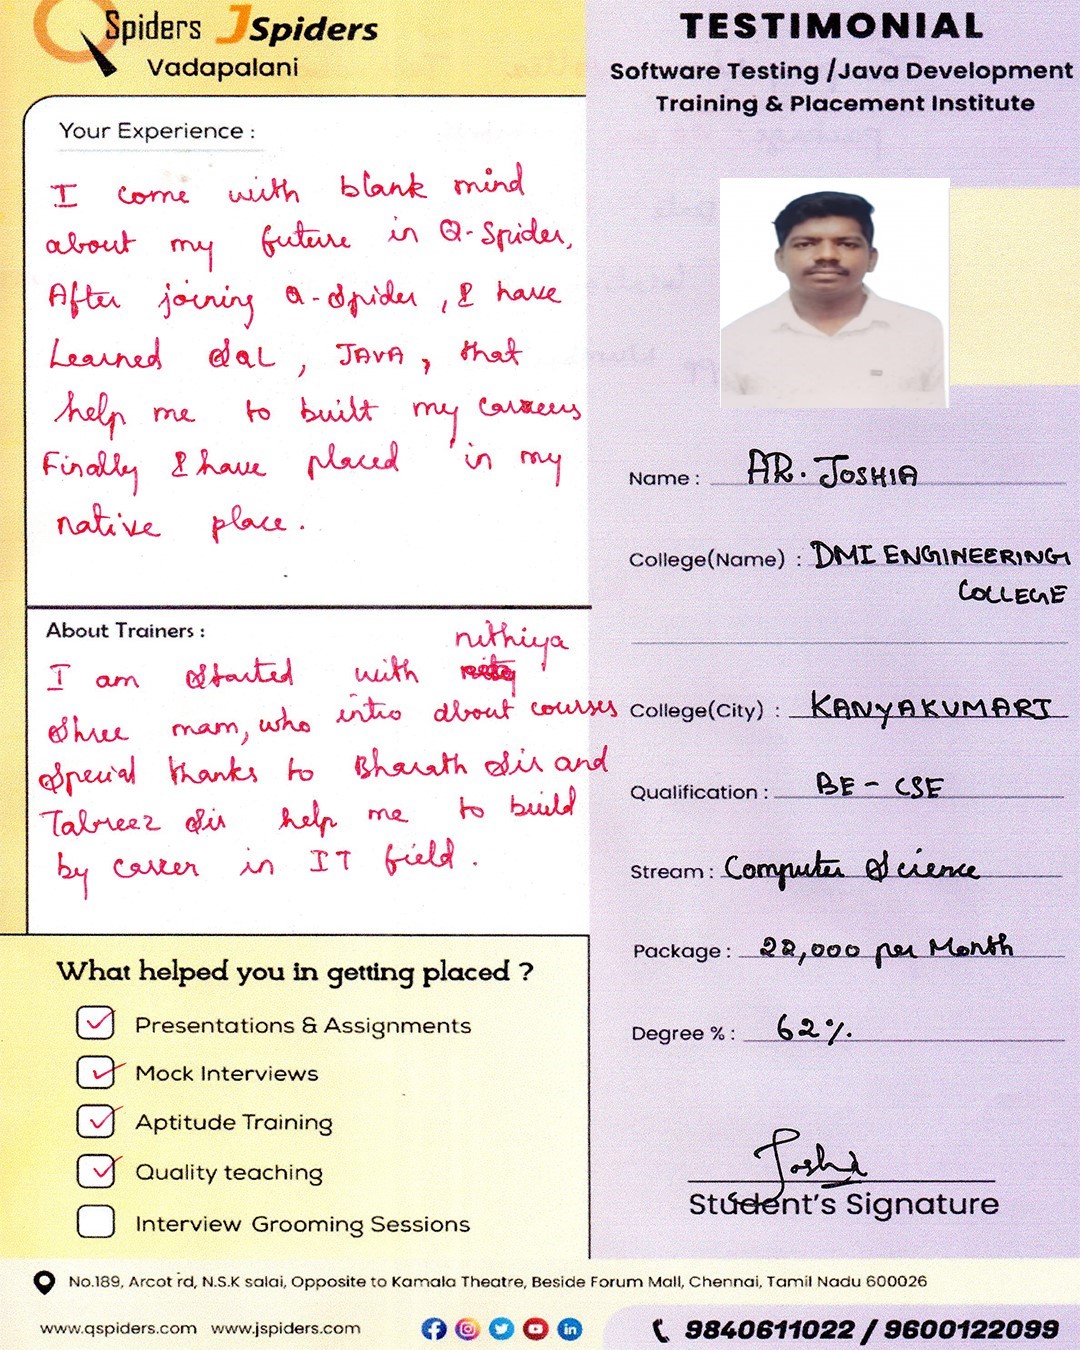 QSpiders JSpiders
Vadapalani
TESTIMONIAL
Software Testing /Java Development
Training & Placement Institute
Your Experience :
I come with blank mind
about my future in Q-Spider,
After joining Q-Spider, I have
Learned SQL, JAVA, that
help me to built my careers
Finally I have placed in my
native place.
About Trainers :
I am started with nithiya
Shree mam, who intro about courses
Special thanks to Bharath Sir and
Tabreez Sir help me to build
by career in IT field.
What helped you in getting placed ?
Presentations & Assignments
Mock Interviews
Aptitude Training
Quality teaching
Interview Grooming Sessions
Name : AR. JOSHIA
College(Name) : DMI ENGINEERING
COLLEGE
College(City) : KANYAKUMARI
Qualification : BE - CSE
Stream : Computer Science
Package : 22,000 per Month
Degree % : 62%.
Joshia
Student's Signature
No.189, Arcot rd, N.S.K salai, Opposite to Kamala Theatre, Beside Forum Mall, Chennai, Tamil Nadu 600026
www.qspiders.com www.jspiders.com
9840611022 / 9600122099